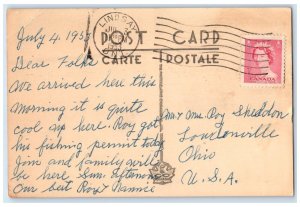 July 4, 1953
LINDSAY
POST CARD
CARTE POSTALE
CANADA
Dear Folks
We arrived here this
morning it is quite
cool up here. Roy got
his fishing permit today
Jim and family will
be here Sun. afternoon
Our best Roy & Nannie
Mr & Mrs. Roy Sheldon
Loudonville
Ohio
U.S.A.